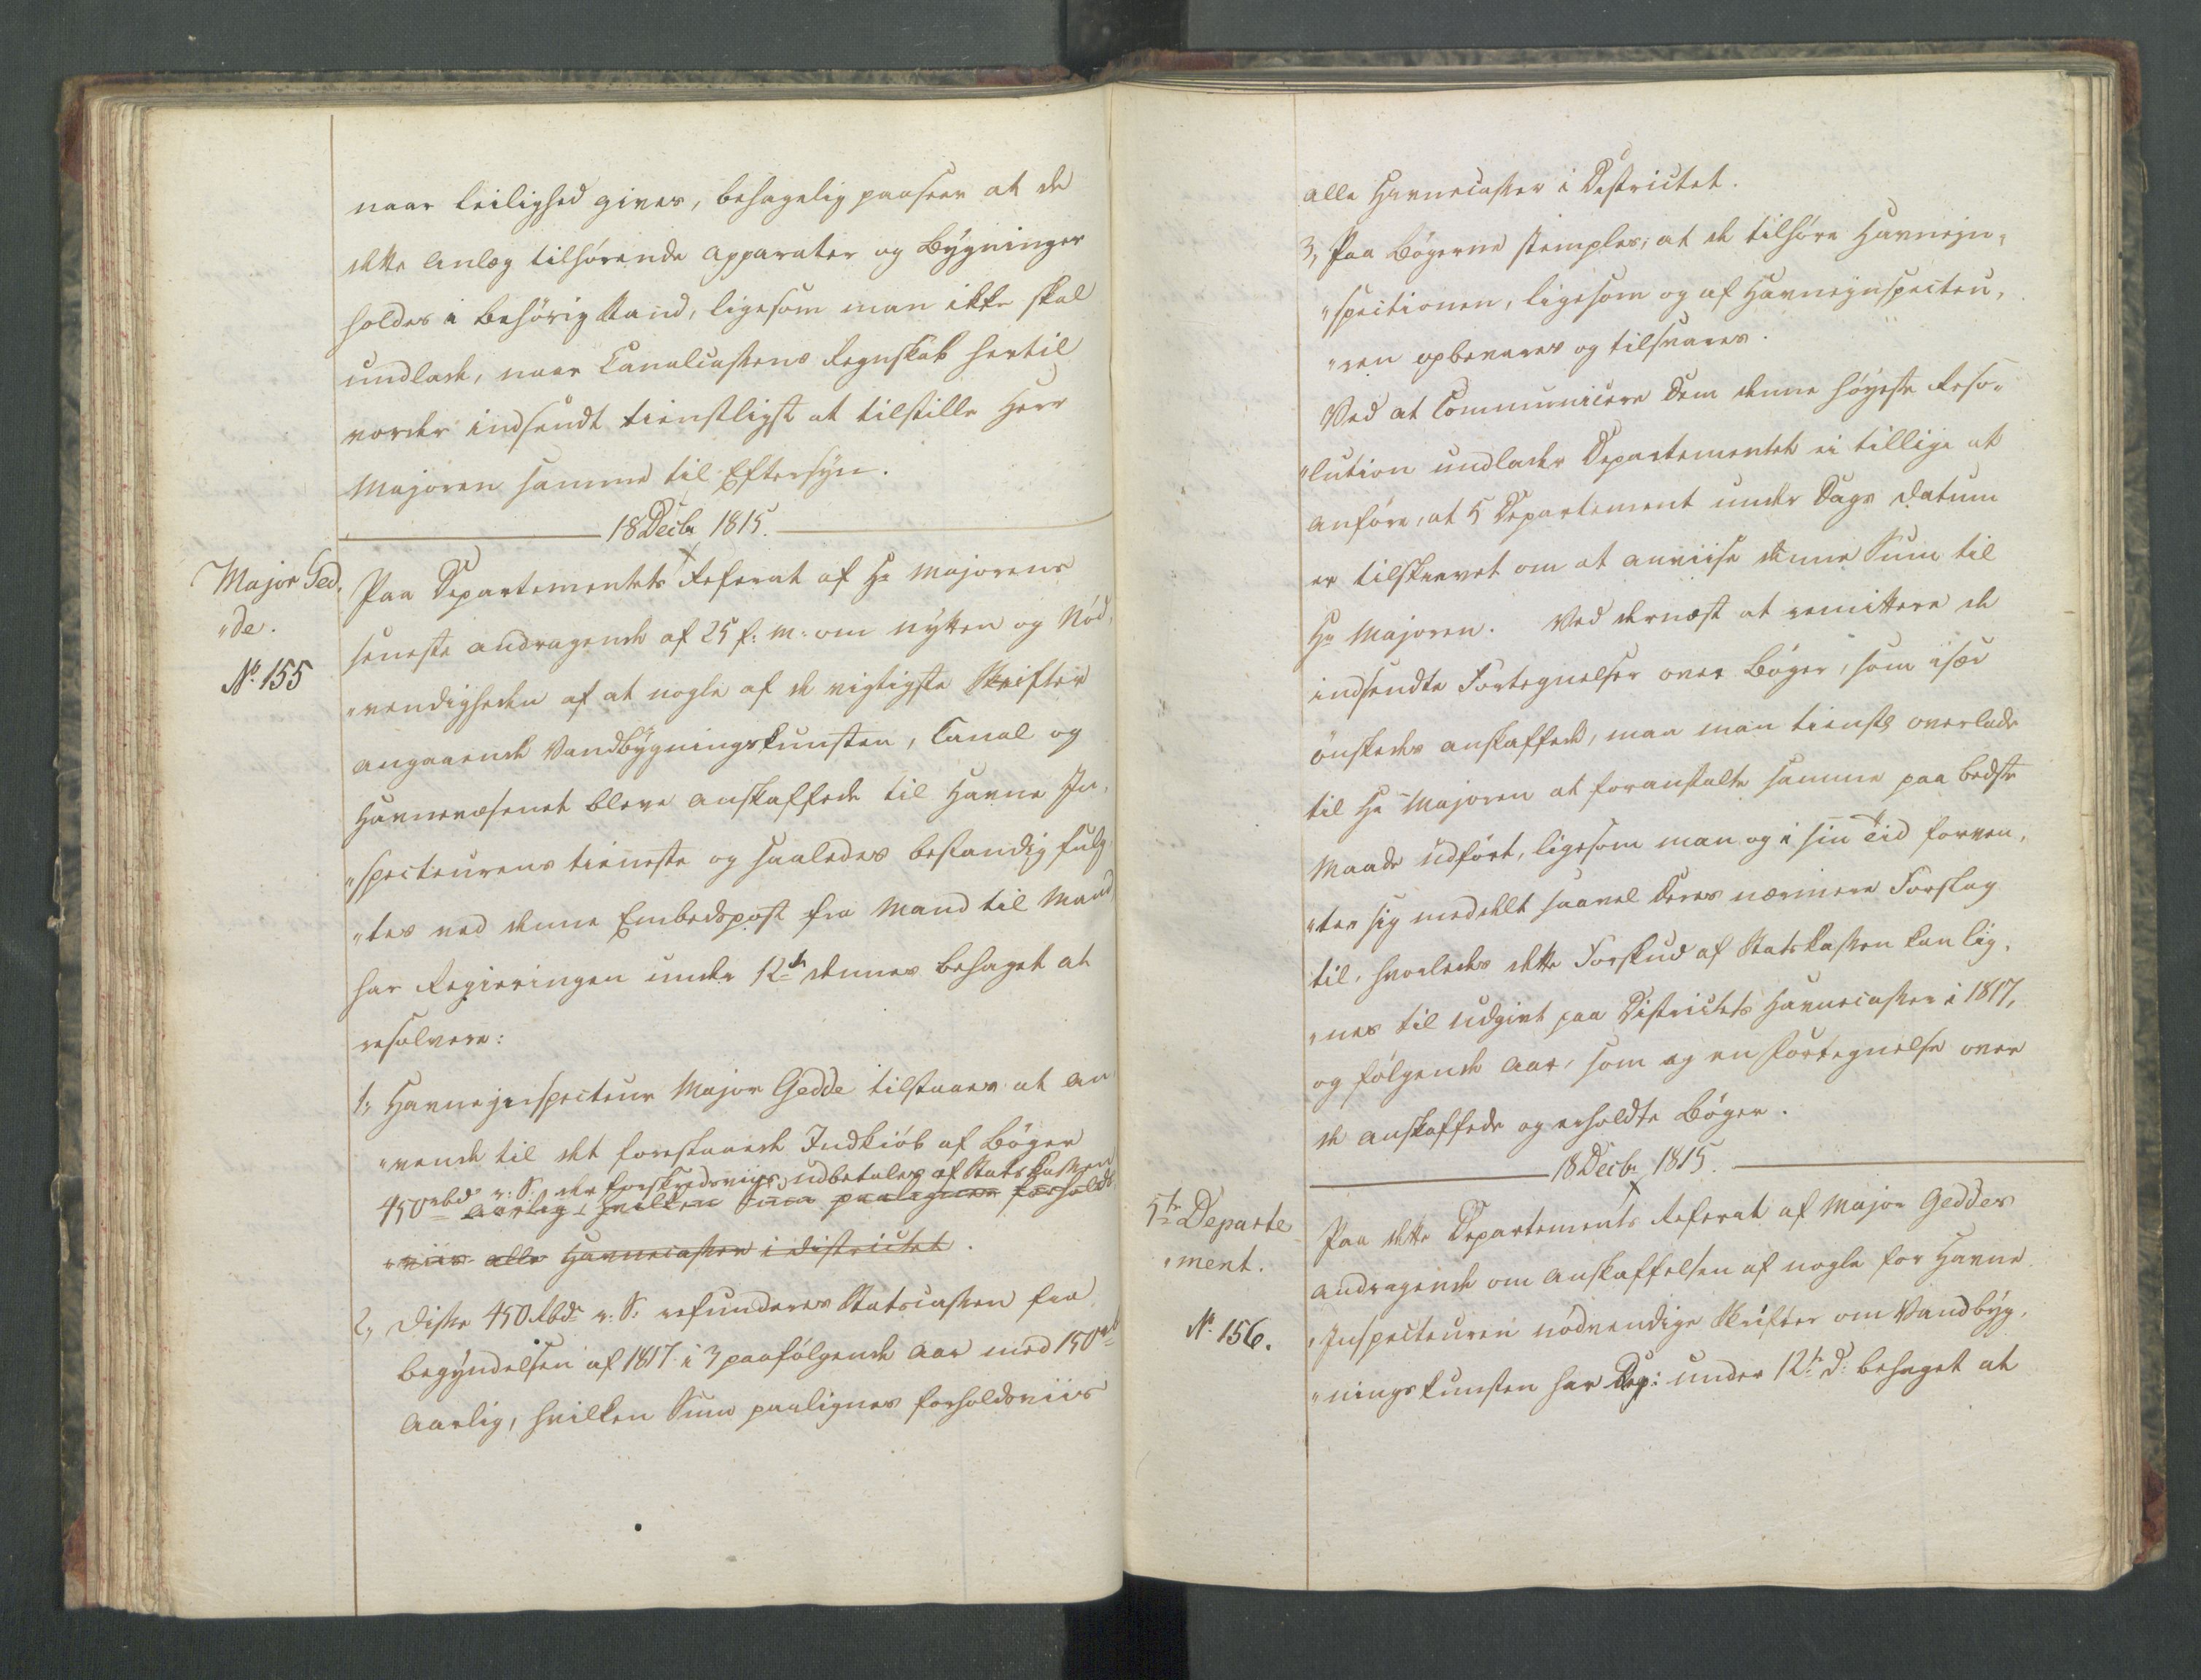 naar Leilighed gives, behagelig paaseer at de
dette Anlæg tilhørende Apparater og Bygninger
holdes i behørig Stand, ligesom man ikke skal
undlade, naar Canalcassens Regnskab hertil
vorder indsendt tienstligst at tilstille Herr
Majoren samme til Eftersyn.
18 Decbr 1815.
Major Ged,
"de.
No. 155
Paa Departementets Referat af Hr Majorens
seneste andragende af 25 f: M: om nytten og Nød,
"vendigheden af at nogle af de vigtigste Skrifter
angaaende Vandbygningskunsten, Canal og
Havnevæsenet bleve anskaffede til Havne In,
"specteurens tieneste og saaledes bestandig fulg,
"tes ved denne Embedspost fra Mand til Mand
har Regieringen under 12te dennes behaget at
resolvere:
1, Havneinspecteur Major Gedde tilstaaes at an
"vende til det forestaaende Indkiøb af Bøger
450 rbd r: S: der forskudsviis udbetales af Statskassen
aarlig, hvilken Sum paalignes forholds
"viis alle Havnecasser i Districtet.
2, Disse 450 Rbd r: S: refunderes Statscassen fra
begyndelsen af 1817 i 3 paafølgende Aar med 150 rbd
Aarlig, hvilken Sum paalignes forholdsviis
alle Havnecasser i Districtet.
3, Paa Bøgerne stemples, at de tilhøre Havnein,
"spectionen, ligesom og af Havneinspecteu,
"ren opbevares og tilsvares.
Ved at Communicere Dem denne høyeste Reso,
"lution undlader Departementet ei tillige at
anføre, at 5 Departement under Dags Datum
er tilskrevet om at anviise denne Sum til
Hr Majoren. Ved dernæst at remittere de
indsendte Fortegnelser over Bøger, som især
ønskedes anskaffede, maa man tienstl overlade
til Hr Majoren at foranstalte samme paa bedste
Maade udført, ligesom man og i sin Tid forven,
"ter sig meddelt saavel Deres nærmere Forslag
til, hvorledes dette Forskud af Statskassen kan lig,
"nes til Udgivt paa Districtets Havnecasser i 1817,
og følgende Aar, som og en Fortegnelse over
de anskaffede og erholdte Bøger.
18 Decbr 1815.
5te Departe
"ment.
No. 156.
Paa dette Departements Referat af Major Geddes
andragende om Anskaffelsen af nogle for Havne
"Inspecteuren nødvendige Skrifter om Vandbyg,
"ningskunsten har Reg: under 12te d: behaget at